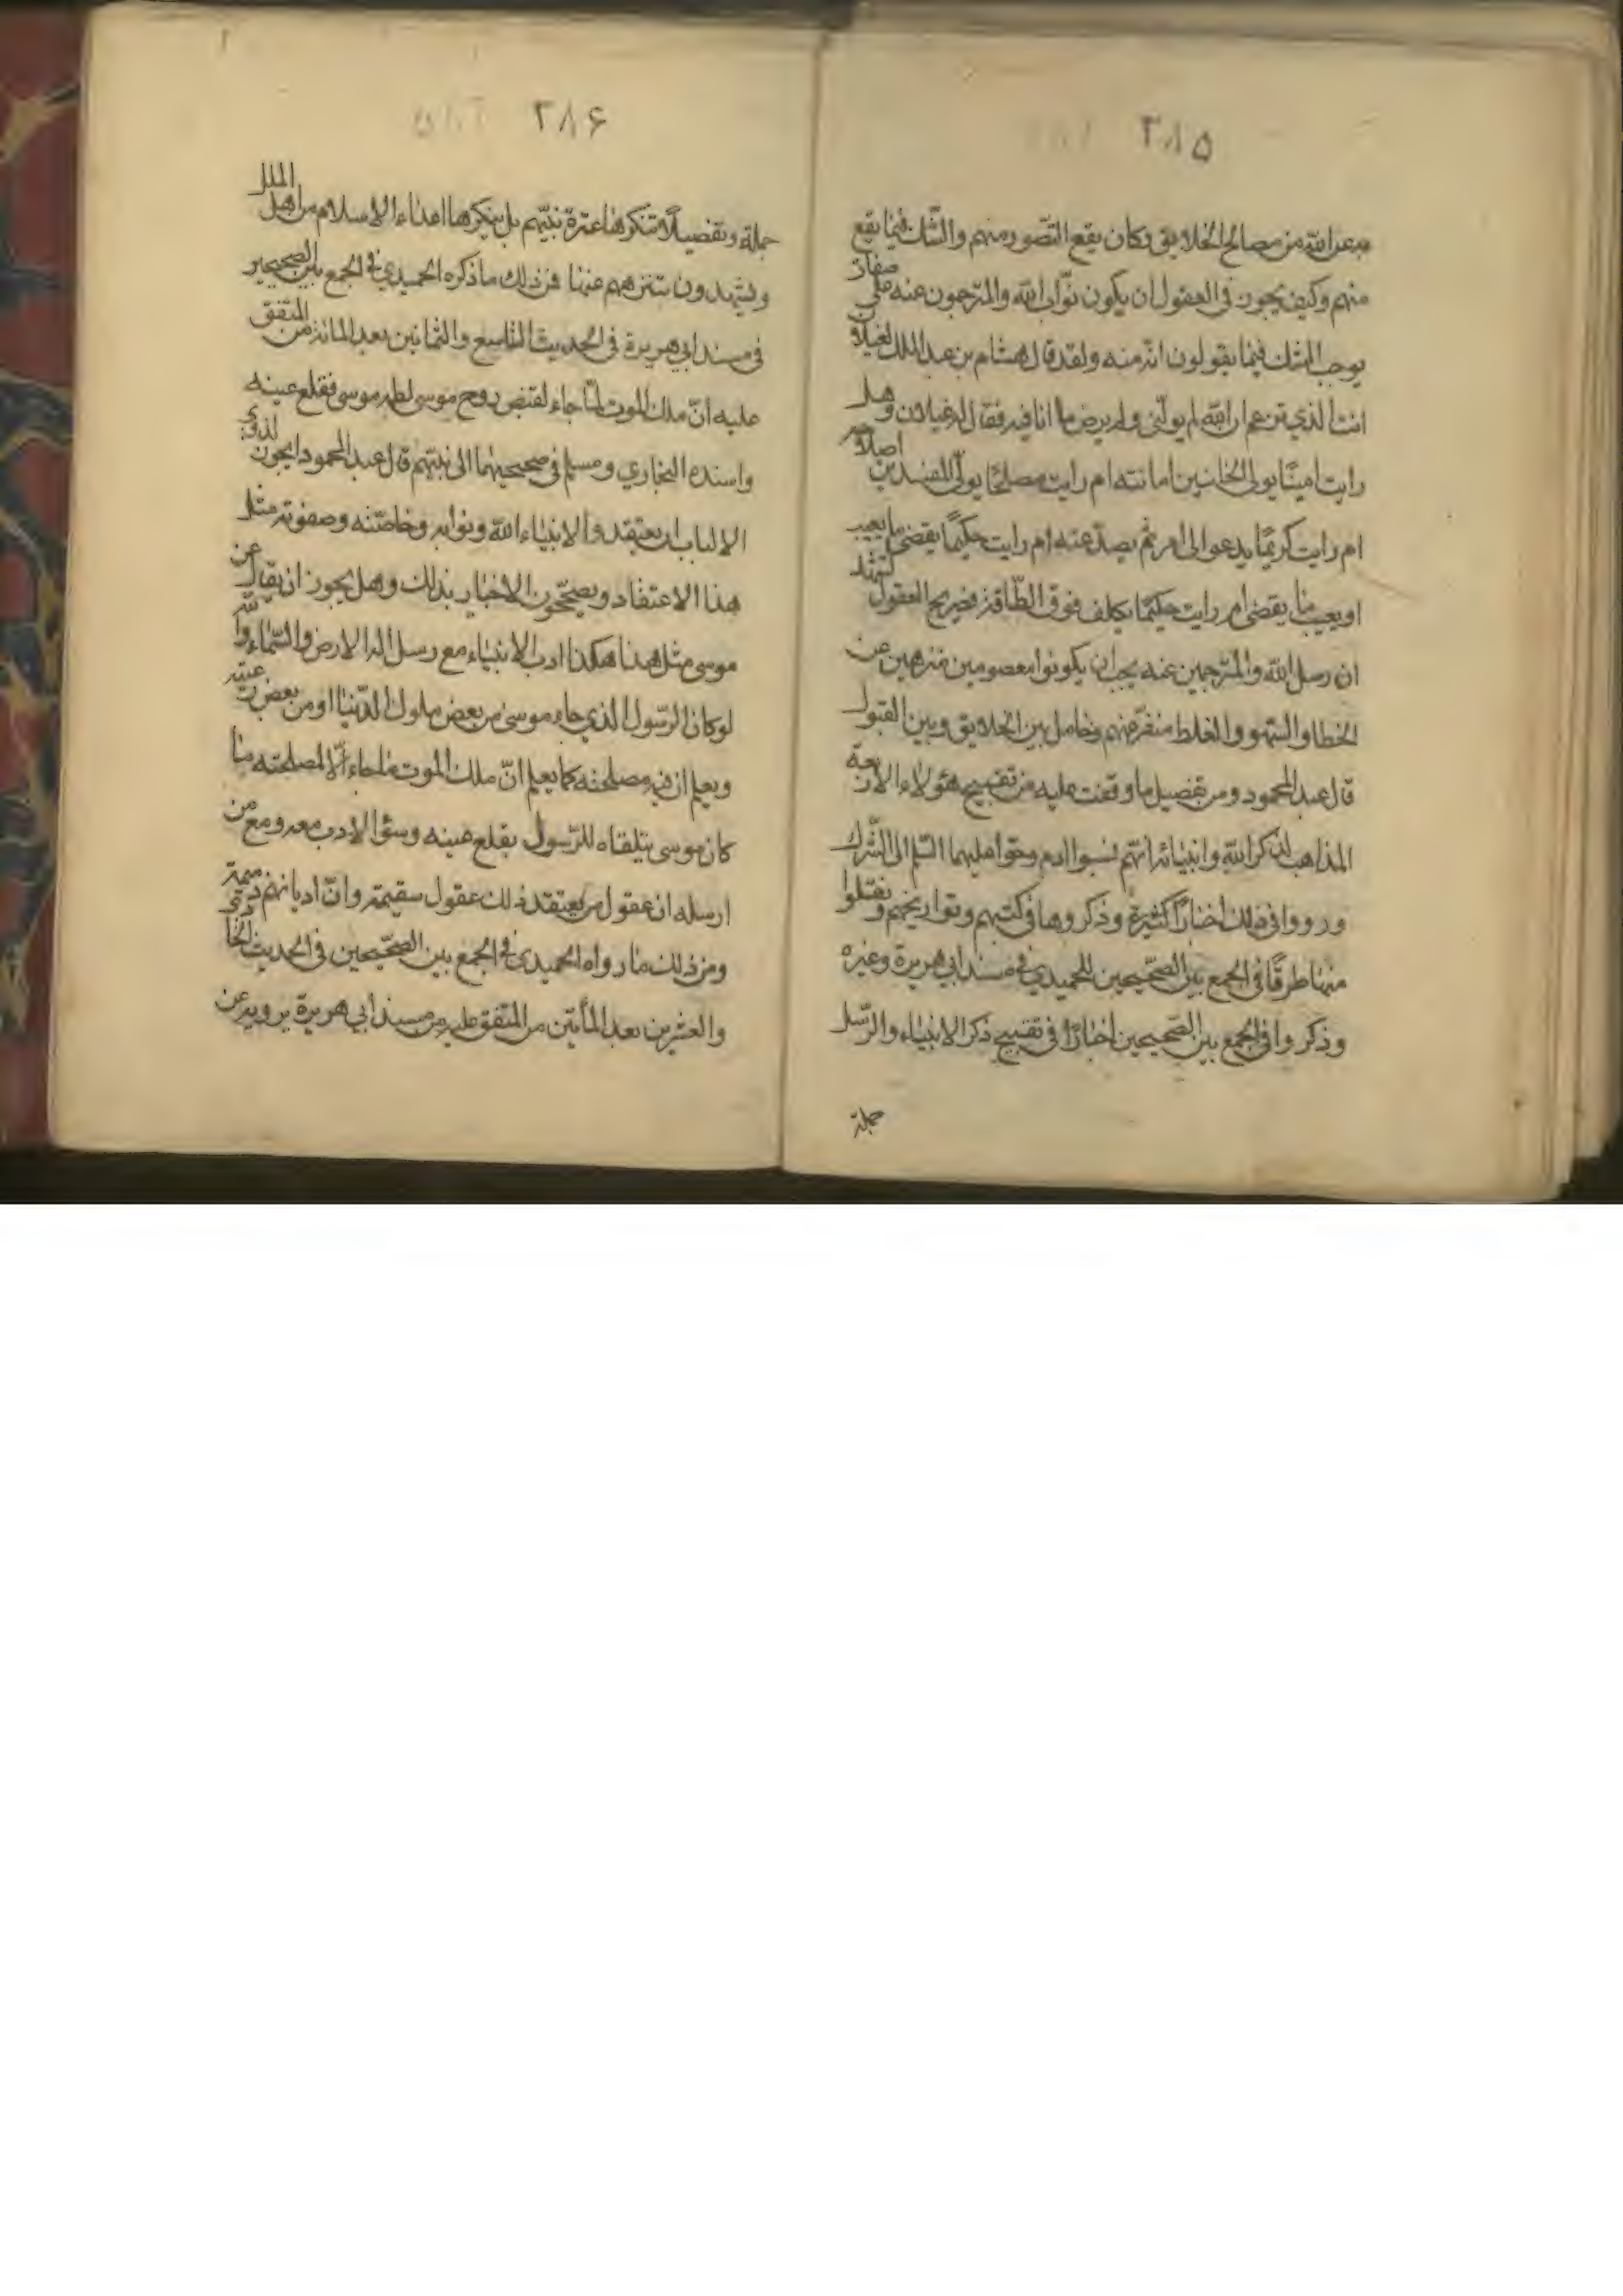 ٢٨٥
عن الله من مصالح الخلايق وكان يقع التصور منهم والشك فيما يقع
منهم وكيف يجوز فى العقول ان يكون نوّاب الله والمترجمون عنه على صفات
يوجب الشك فيما يقولون انه منه ولقد قال هشام بن عبد الملك لغيلان
انت الذي تزعم ان الله لم يولّنى ولم يرض ما انا فيه فقال له غيلان وهل
رايت امينًا يولى الخائنين امانته ام رايت مصلحًا يولّى المفسدين اصلاحه
ام رايت كريمًا يدعو الى امر ثم يصدّ عنه ام رايت حكيمًا يقضى ما يعيب
او يعيب ما يقضى ام رايت حكيمًا يكلف فوق الطّاقة فصريح العقول تشهد
ان رسل الله والمترجمين عنه يجب ان يكونوا معصومين منزهين عن
الخطا والسّهو والغلط منفّر عنهم وحامل بين الخلايق وبين القبول
قال عبد المحمود ومن تفصيل ما وقفت عليه من تقبيح هؤلاء الاربعة
المذاهب لذكر الله وانبيائه انهم نسبوا ادم وحوا عليهما السّلم الى الشّرك
ورووا فى ذلك اخبارًا كثيرة وذكروها فى كتبهم وتواريخهم ونقلوا
منها طرقًا فى الجمع بين الصّحيحين للحميدي فى مسند ابي هريرة وغيره
وذكروا فى الجمع بين الصّحيحين اخبارًا فى تقبيح ذكر الانبياء والرّسل
جملة
٢٨۶
جملة وتفصيلًا تنكرها عترة نبيّهم بل ينكرها اعداء الاسلام من اهل الملل
ويشهدون بتنزههم عنها فمن ذلك ما ذكره الحميدي فى الجمع بين الصحيحين
فى مسند ابي هريرة فى الحديث التاسع والثمانين بعد المائة من المتفق
عليه انّ ملك الموت لمّا جاء لقبض روح موسى لطمه موسى فقلع عينه
واسنده البخاري ومسلم فى صحيحيهما الى نبيّهم قال عبد المحمود ايجوز لذوى
الالباب ان يعتقدوا لانبياء الله ونوابه وخاصّته وصفوته مثل
هذا الاعتقاد ويصحّحون الاخبار بذلك وهل يجوز ان يقال عن
موسى مثل هذا هكذا ادب الانبياء مع رسل اله الارض والسّماء والله
لو كان الرّسول الذي جاء موسى من بعض ملوك الدّنيا او من بعض رعيّته
ويعلم ان فيه مصلحته كما يعلم انّ ملك الموت ما جاء الّا لمصلحته ما
كان موسى يتلقاه للرّسول بقلع عينه وسؤ الادب معه ومع من
ارسله ان عقول من يعتقد ذلك عقول سقيمة وانّ اديانهم ذميمة
ومن ذلك ما رواه الحميدى فى الجمع بين الصّحيحين فى الحديث الحادى
والعشرين بعد المأتين من المتفق عليه من مسند ابي هريرة يرويه عن